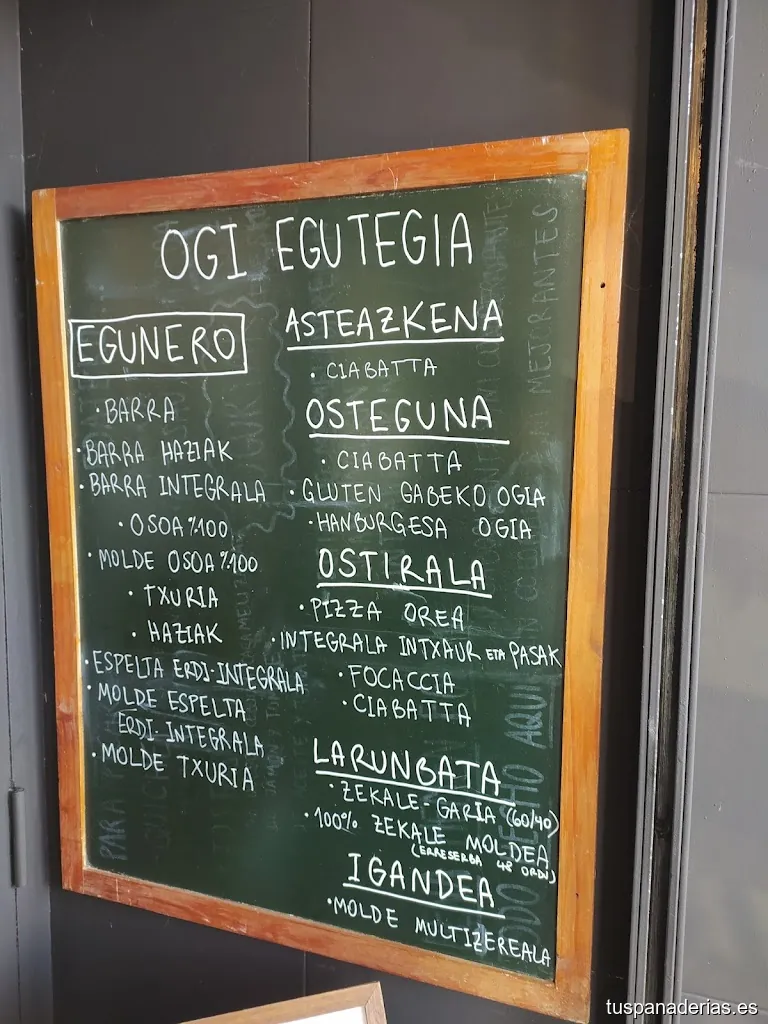 OGI EGUTEGIA
EGUNERO
• BARRA
• BARRA HAZIAK
• BARRA INTEGRALA
• OSOA %100
• MOLDE OSOA %100
• TXURIA
• HAZIAK
• ESPELTA ERDI-INTEGRALA
• MOLDE ESPELTA
ERDI-INTEGRALA
• MOLDE TXURIA
ASTEAZKENA
• CIABATTA
OSTEGUNA
• CIABATTA
• GLUTEN GABEKO OGIA
• HANBURGESA OGIA
OSTIRALA
• PIZZA OREA
• INTEGRALA INTXAUR ETA PASAK
• FOCACCIA
• CIABATTA
LARUNBATA
• ZEKALE-GARIA (60/40)
• 100% ZEKALE MOLDEA
(ERRESERBA 48 ORDU)
IGANDEA
• MOLDE MULTIZEREALA
MEJORANTES
AQUI
PARA
tuspanaderias.es